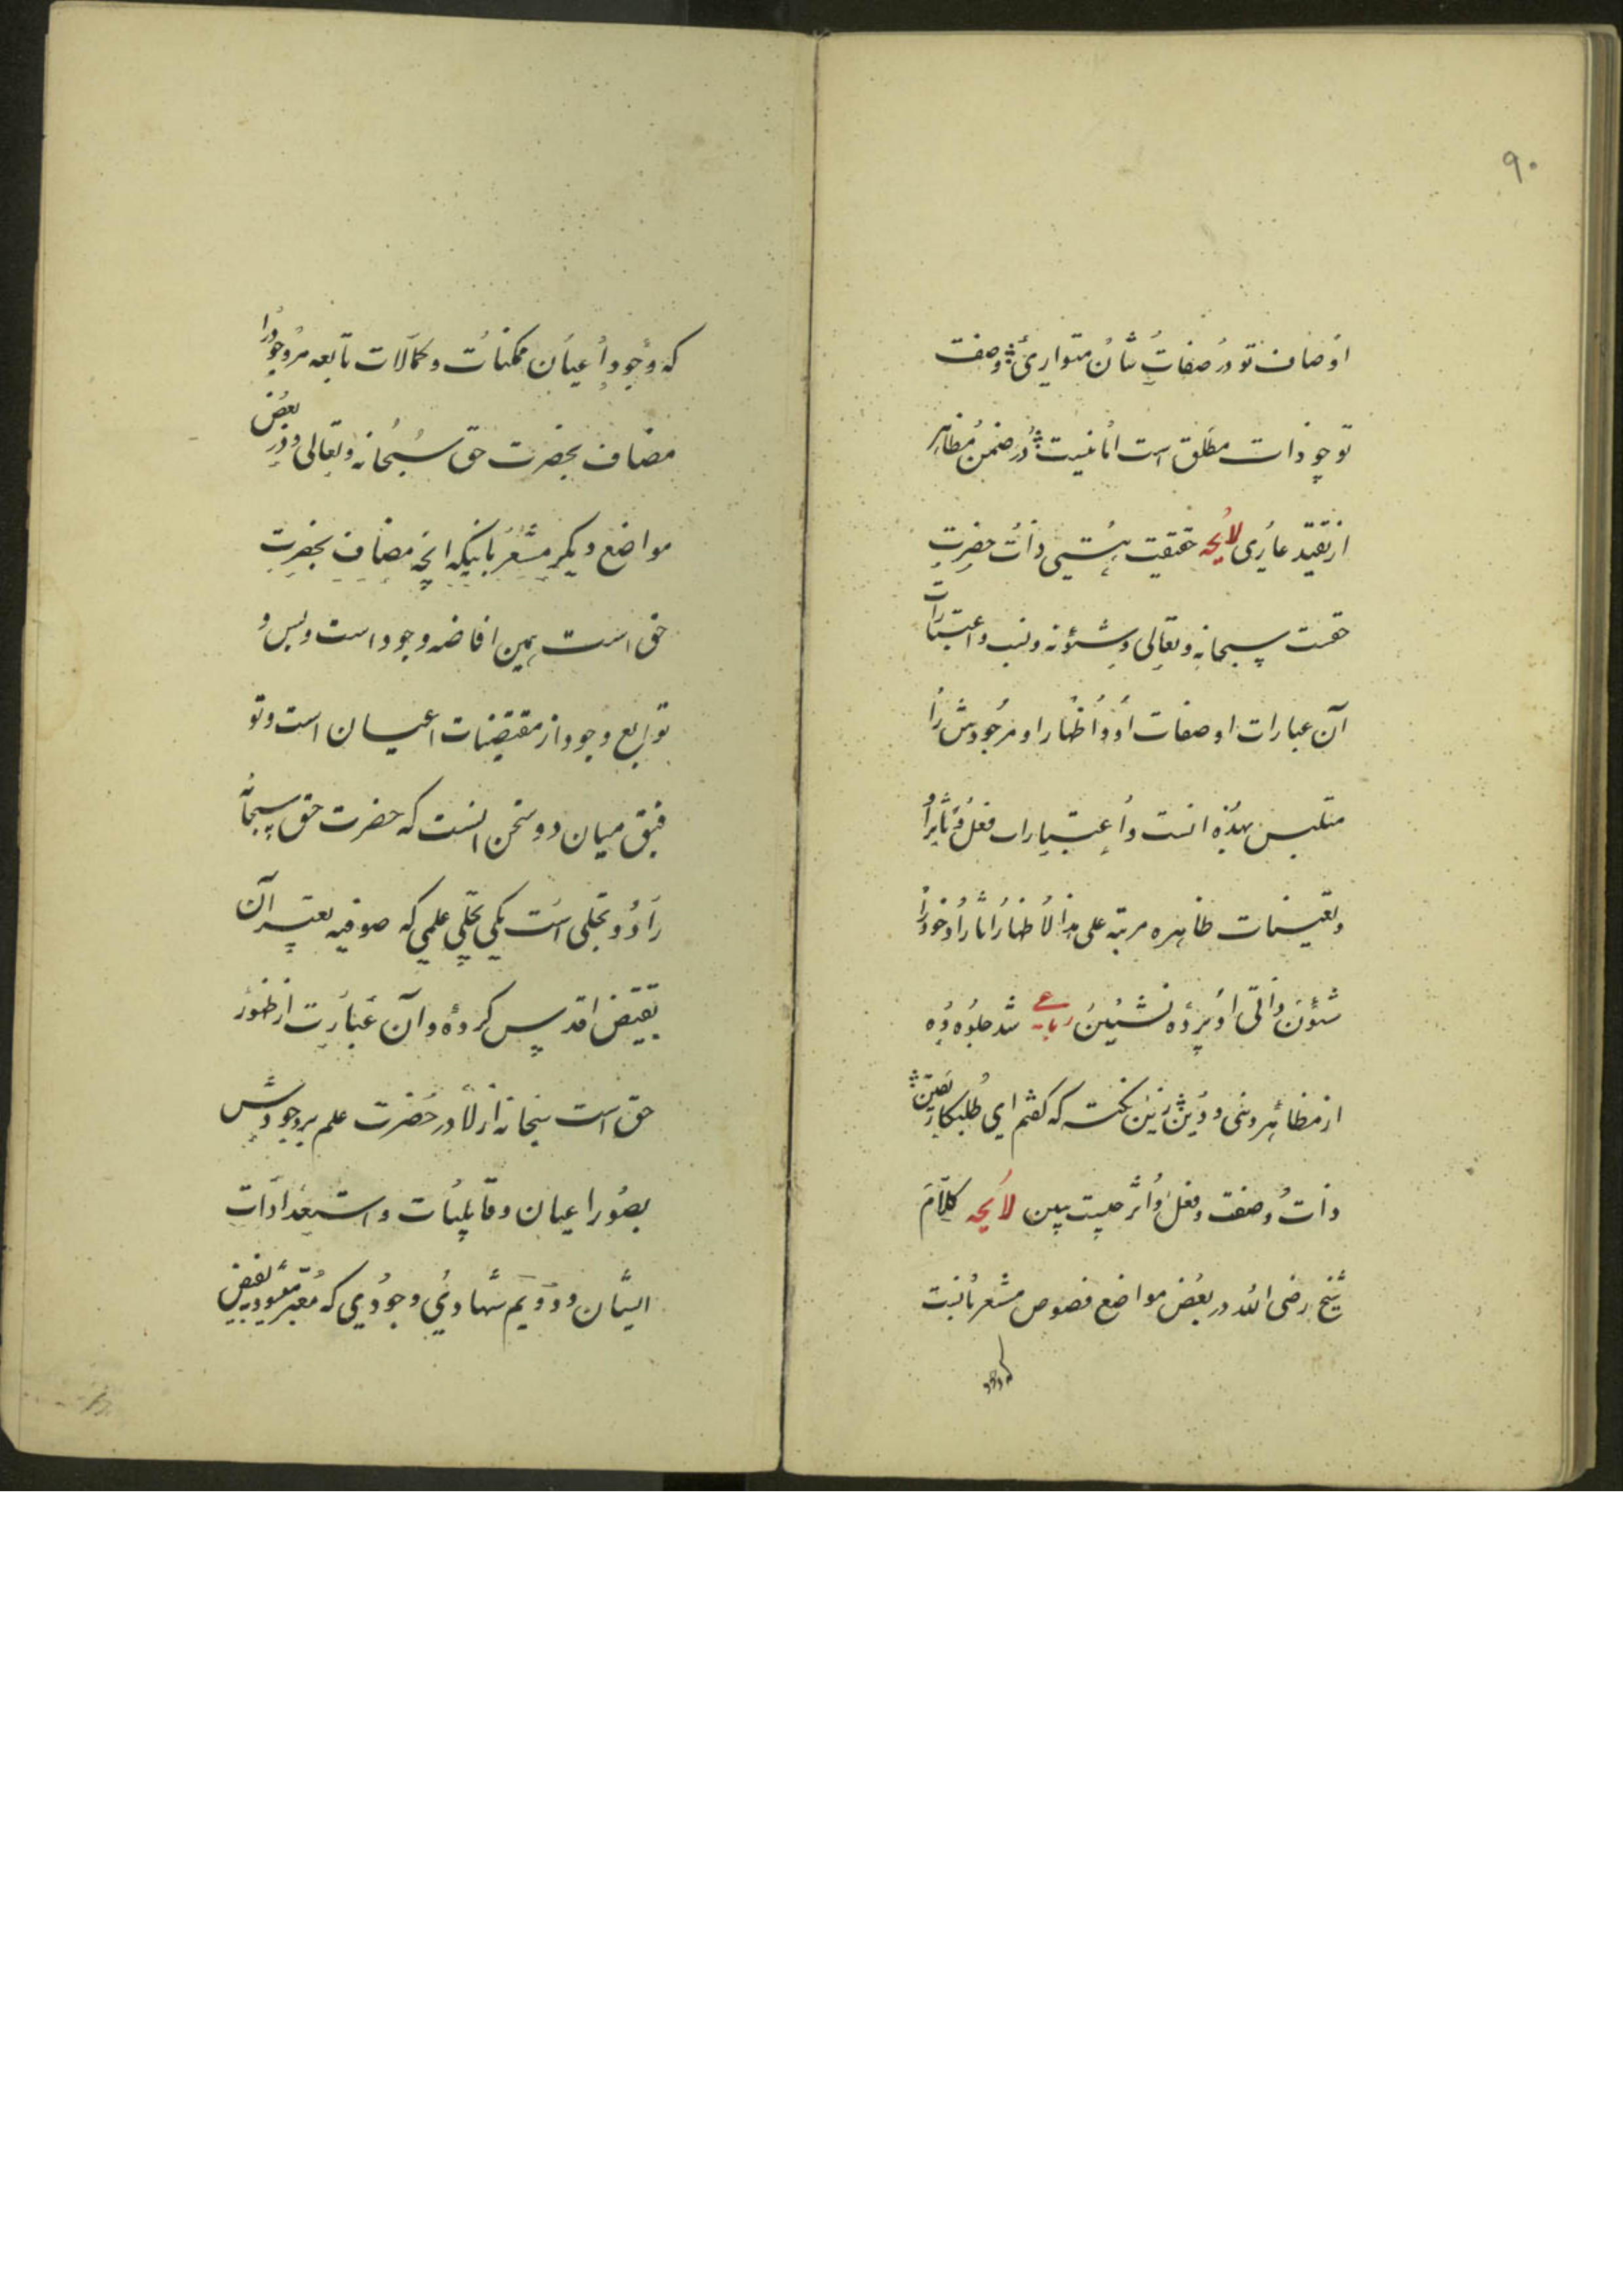 ۹۰
اوصاف تو در صفات شان متواری ؞ وصف
تو چو ذات مطلق است اما نیست ؞ در ضمن مظاهر
از تقید عاری لایحه حقیقت هستی ذات حضرت
حقست سبحانه و تعالی و شئونه و نسب و اعتبارات
آن عبارات او صفات او و اظهار او مر خودش را
متلبس بهذه انست و اعتبارات فعل و تاثیر او
و تعینات ظاهره مرتبه علی هذا لاظهار آثار او خود را
شئون ذاتی او پرده نشین رباعی شد جلوه ده
از مظاهر دنی و دین ؞ زین نکته که گفتم ای طلبکار یقین ؞
ذات و صفت و فعل و اثر چیست ببین لایحه کلام
شیخ رضی الله در بعض مواضع فصوص مشعر بانست
که وجود
که وجود اعیان ممکنات و کمالات تابعه مر وجود را
مضاف بحضرت حق سبحانه و تعالی و در بعض
مواضع دیگر مشعر بانیکه انچه مضاف بحضرت
حق است همین افاضه وجود است و بس و
توابع وجود از مقتضیات اعیان است و تو
فیق میان دو سخن انست که حضرت حق سبحانه
را دو تجلی است یکی تجلی علمی که صوفیه تعبیر آن
بفیض اقدس کرده و آن عبارت از ظهور
حق است سبحانه ازلا در حضرت علم بر وجودش
بصور اعیان و قابلیات و استعدادات
ایشان و دویم شهادی وجودی که معبر میشود بفیض